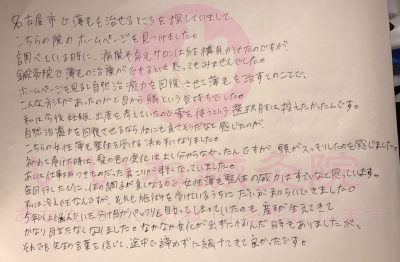 名古屋市で薄毛を治せるところを探していまして、
こちらの院のホームページを見つけました。
調べている時に、病院や育毛サロンは結構見かけたのですが、
鍼灸院で薄毛の治療ができるとは思ってもみませんでした。
ホームページを見ると自然治癒力を回復させて薄毛を治すとのことで、
こんな方法があったのかと目から鱗という気持ちでした。
私は今後妊娠、出産を考えていたので薬を使うという選択肢は控えたかったんです。
自然治癒力を回復できるなら体にも良さそうだなと感じたのが、
こちらの女性薄毛整体を受ける決め手になりました。
初めて受けた時は、髪の毛の変化はよく分からなかったんですが、頭がスッキリしたのを感じました。
あとは体がぽかぽかして
毎回行くたびに、体の調子が良くなるので、女性薄毛整体の威力はすごいなと思っています。
私は冷え性なんですが、もともと施術を受けているうちにだいぶ和らいできました。
今年の上旬悩んでいた分け目がパックリ目立ってしまっていたのも、産毛が生えてきて
かなり目立たなくなりました。なかなか変化が出ずにへこんだ時もありましたが、
それでも先生の言葉を信じて、途中で諦めずに続けてきて良かったです。